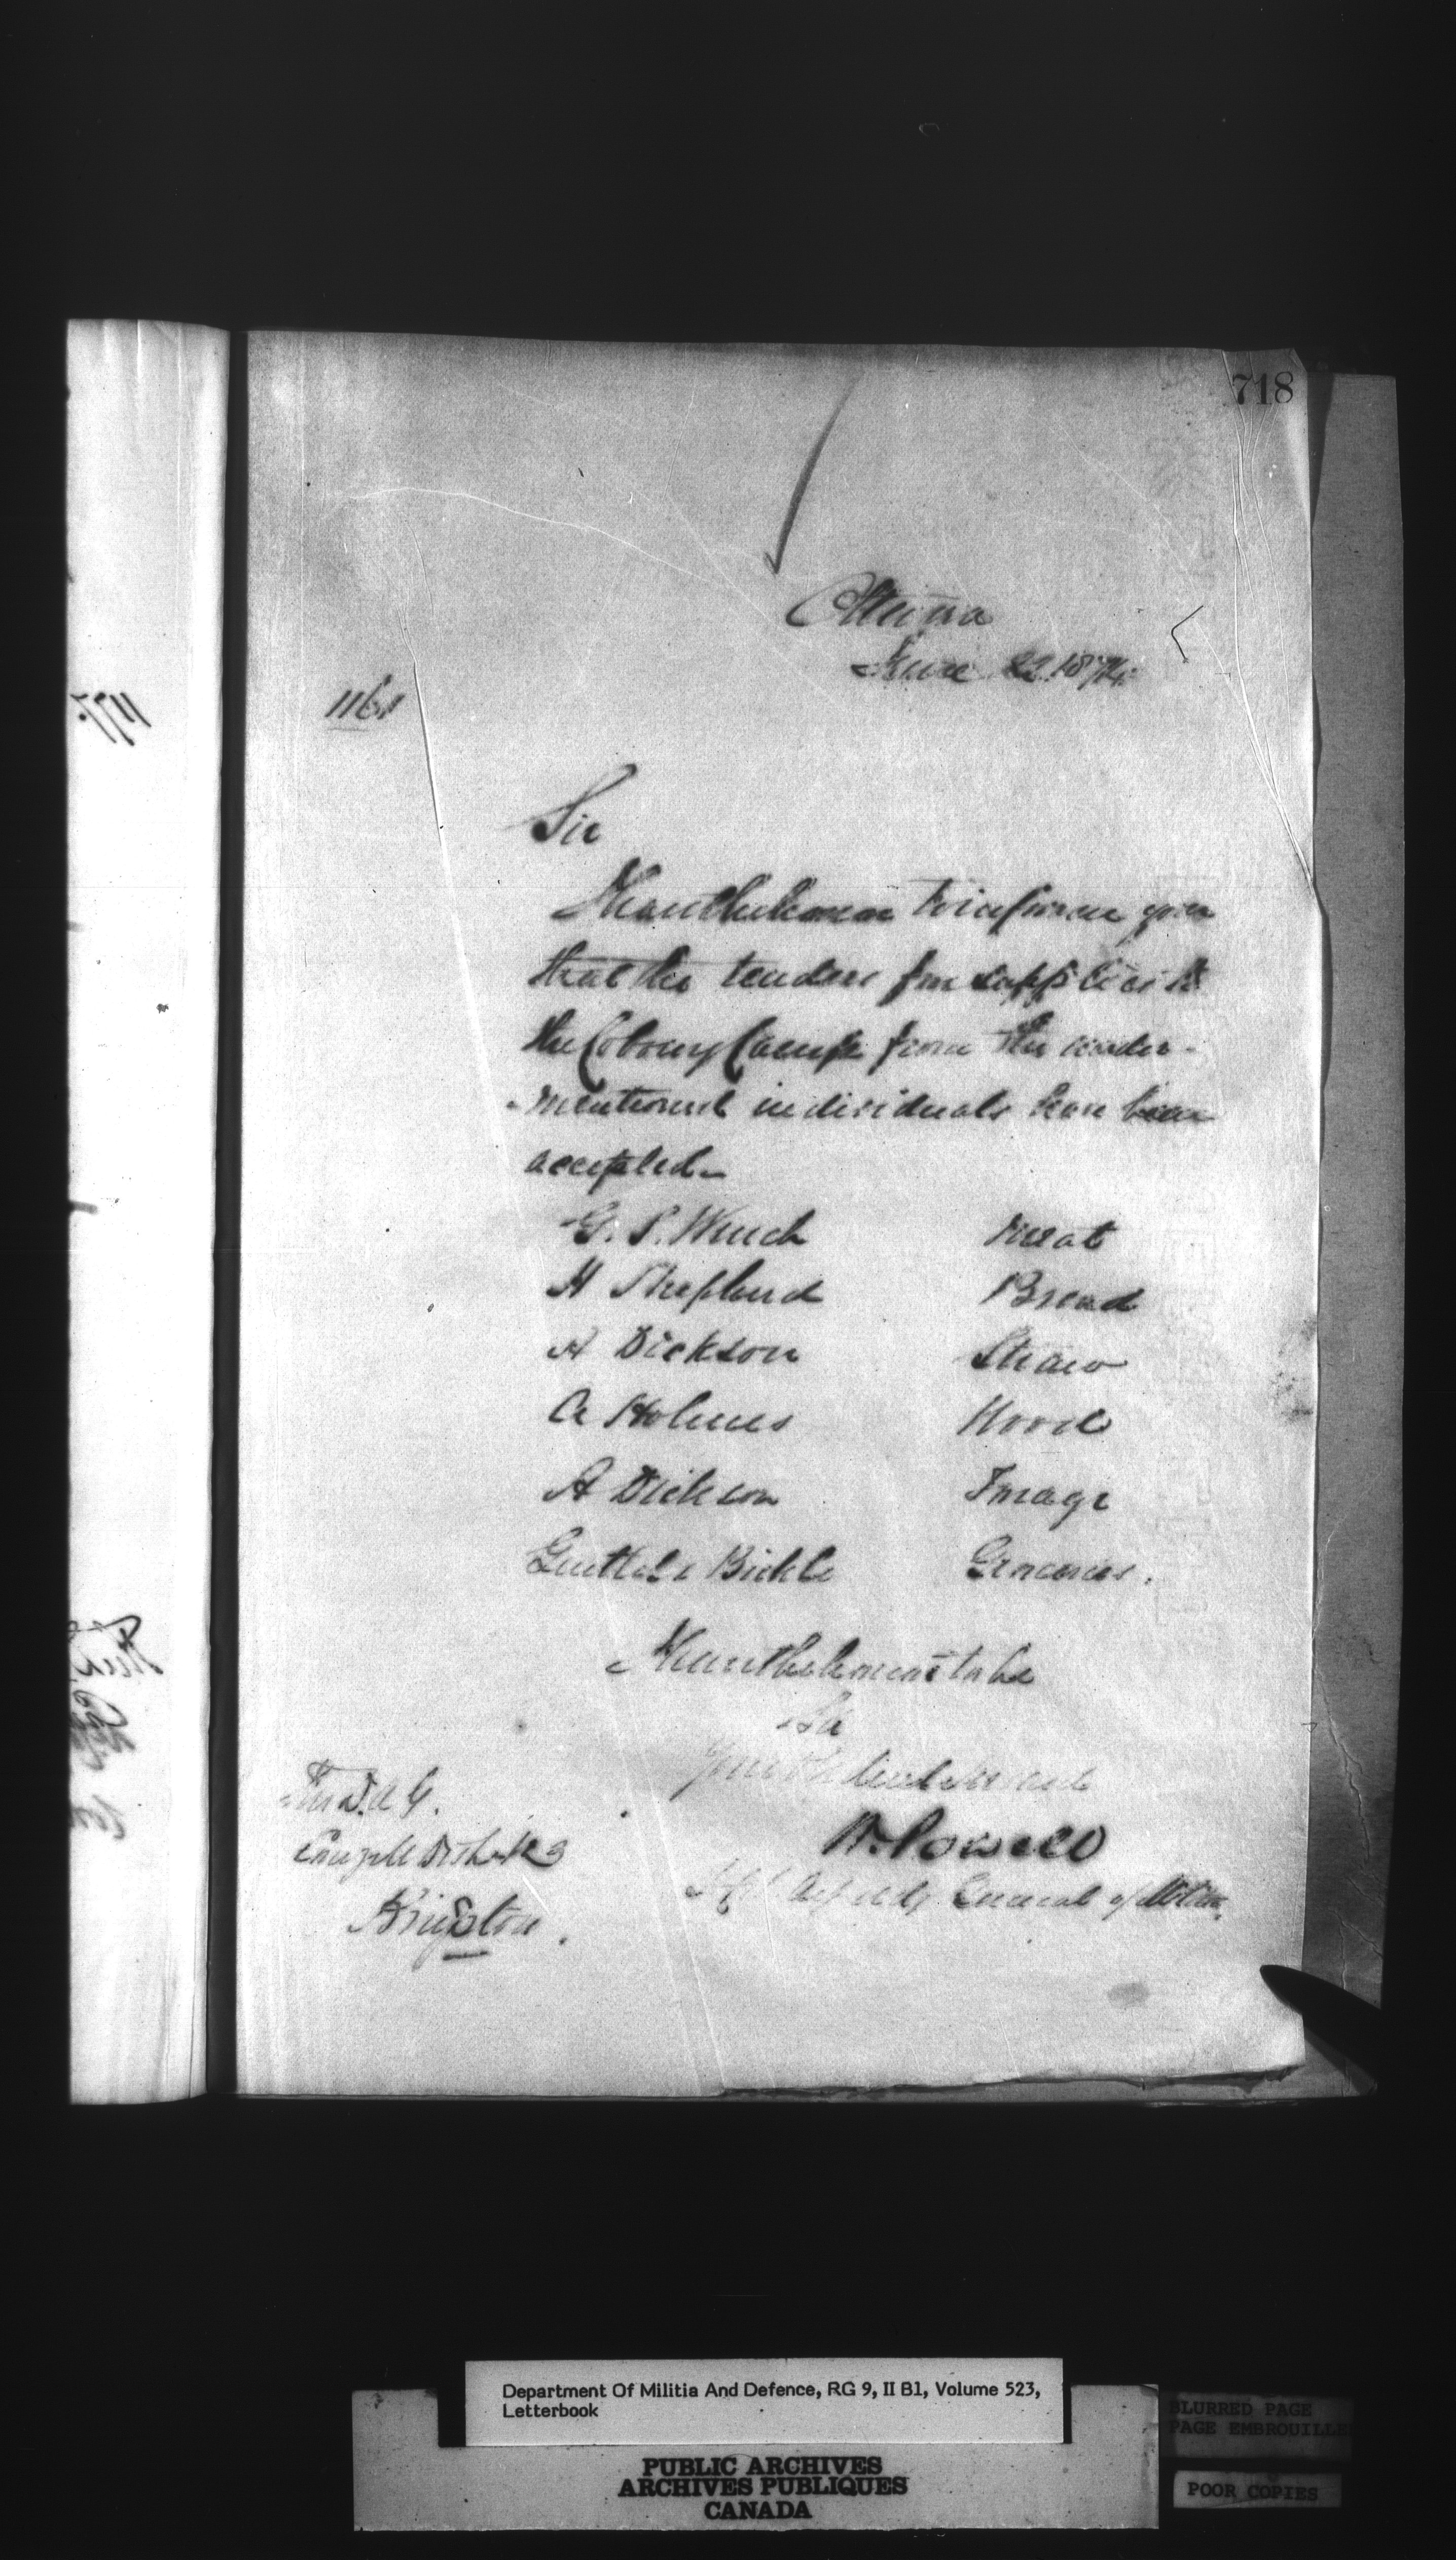 718
Ottawa
June 22 1874.
1161
Sir
I have the honour to inform you
that the tenders for supplies to
the Cobourg Camp from the under-
-mentioned individuals have been
accepted_
G. S. Winch Meat
H Shepherd Bread
A Dickson Straw
A Holmes Wood
A Dickson Forage
Bickle Groceries.
I have the honour to be
Sir
Your Obedient Servant
W. Powell
General of Militia
The D. A. G.
Comg Mil District No 3
Kingston.
Department Of Militia And Defence, RG 9, II B1, Volume 523,
Letterbook
PUBLIC ARCHIVES
ARCHIVES PUBLIQUES
CANADA
BLURRED PAGE
PAGE EMBROUILLE
POOR COPIES